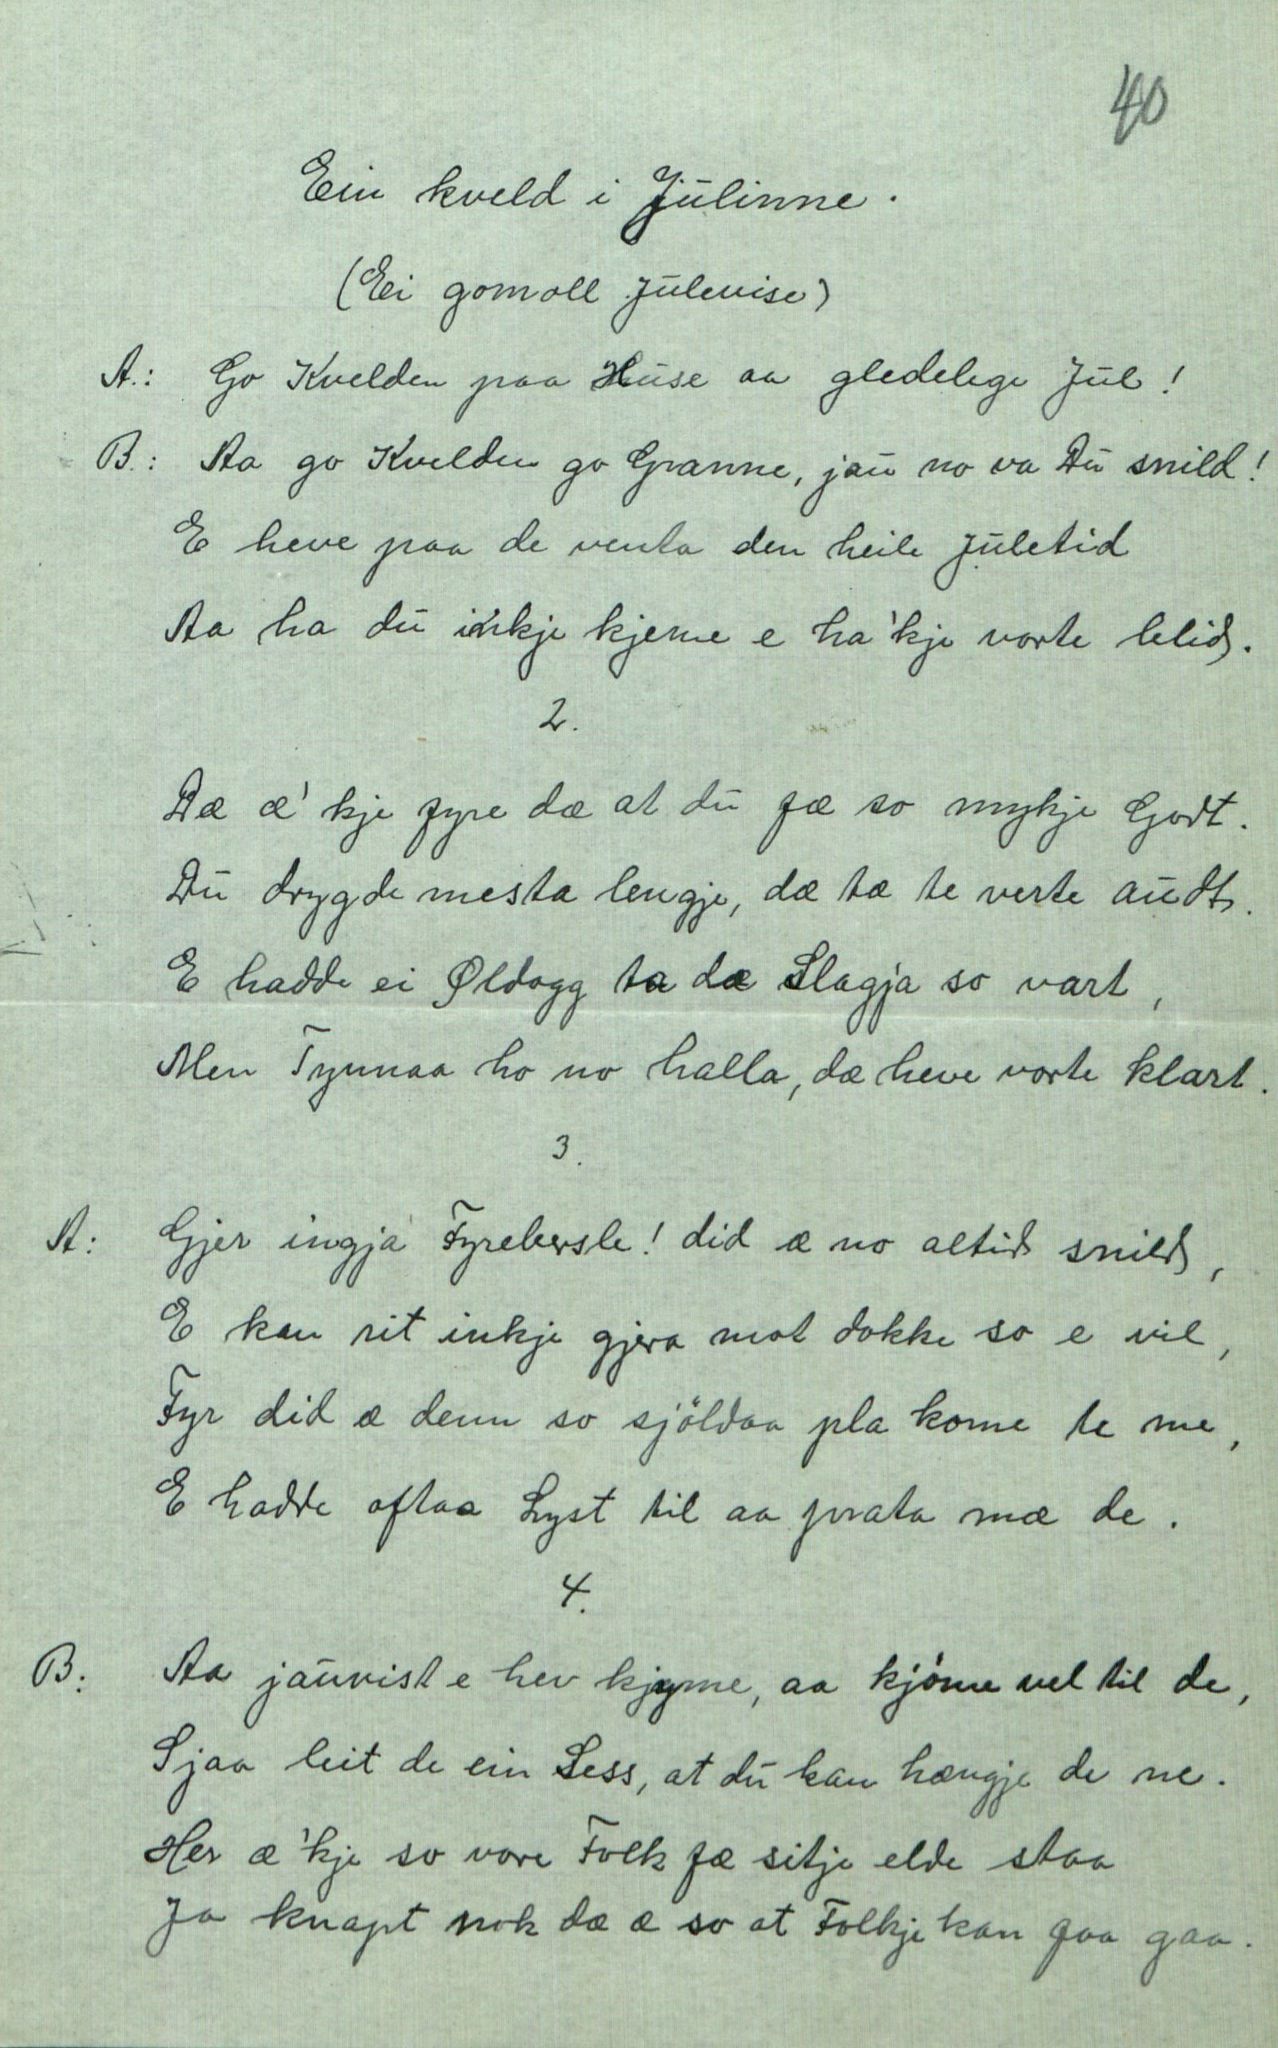 40
Ein kveld i Julinne.
(Ei gomoll Julevise)
A.: Go Kvelden paa Huse aa gledelege Jul!
B.: Aa go Kvelden go Granne, jau no va Du snild!
E heve paa de venta den heile Juletid
Aa ha du inkje kjeme e ha'kje vorte blid.
2.
Dæ æ'kje fyre dæ at du fæ so mykje Godt.
Du drygde mesta lengje, dæ tæ te verte audt.
E hadde ei Øldogg ta dæ Slagja so vart,
Men Tynnaa ho no halla, dæ heve vorte klart.
3.
A: Gjer ingja Fyrebersle! did æ no altid snild,
E kan rit inkje gjera mot dokke so e vil,
Fyr did æ denn so sjöldaa pla kome te me,
E hadde oftaa Lyst til aa prata mæ de.
4.
B: Aa jauvist e hev kjyme, aa kjöme vel til de,
Sjaa leit de ein Sess, at du kan hængje de ne.
Her æ'kje so vore Folk fæ sitje elde staa
Ja knapt nok dæ æ so at Folkje kan faa gaa.